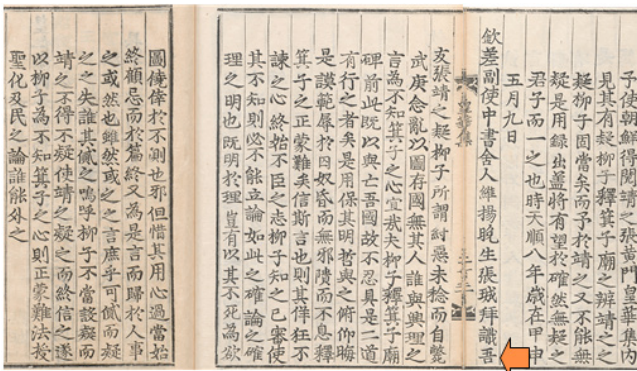 子使朝鮮得閱靖之張黃門皇華集内
見其有疑柳子釋箕子廟之辨靖之之
疑柳子固當矣而予於靖之又不能無
疑是用録出盖將有望於確然無疑之
君子而一之也時天順八年歳在甲申
五月九日
欽差副使中書舍人維揚晩生張珹拜識吾
皇華集
友張靖之疑柳子所謂紂惡未稔而自斃
武庚念亂以圖存國無其人誰與興理之
言為不知箕子之心宜哉夫柳子釋箕子廟
碑前此既以與亡吾國故不忍具是二道
有行之者矣是用保其明哲與之俯仰晦
是謨範辱於囚奴昏而無邪隤而不息釋
箕子之正蒙難矣信斯言也則其佯狂不
諫之心終始不臣之志柳子知之已審使
其不知則必不能立論如此之確論之確
理之明也既明於理豈有以其不死為欲
圖僥倖於不測也邪但惜其用心過當始
終顧忌而於篇終又為是言而歸於人事
之或然也雖然或之之言庶乎可儆而疑
之之失誰其儆之嗚呼柳子不當設疑而
靖之不得不疑使靖之疑之而終信之遂
以柳子為不知箕子之心則正蒙難法授
聖化及民之論誰能外之